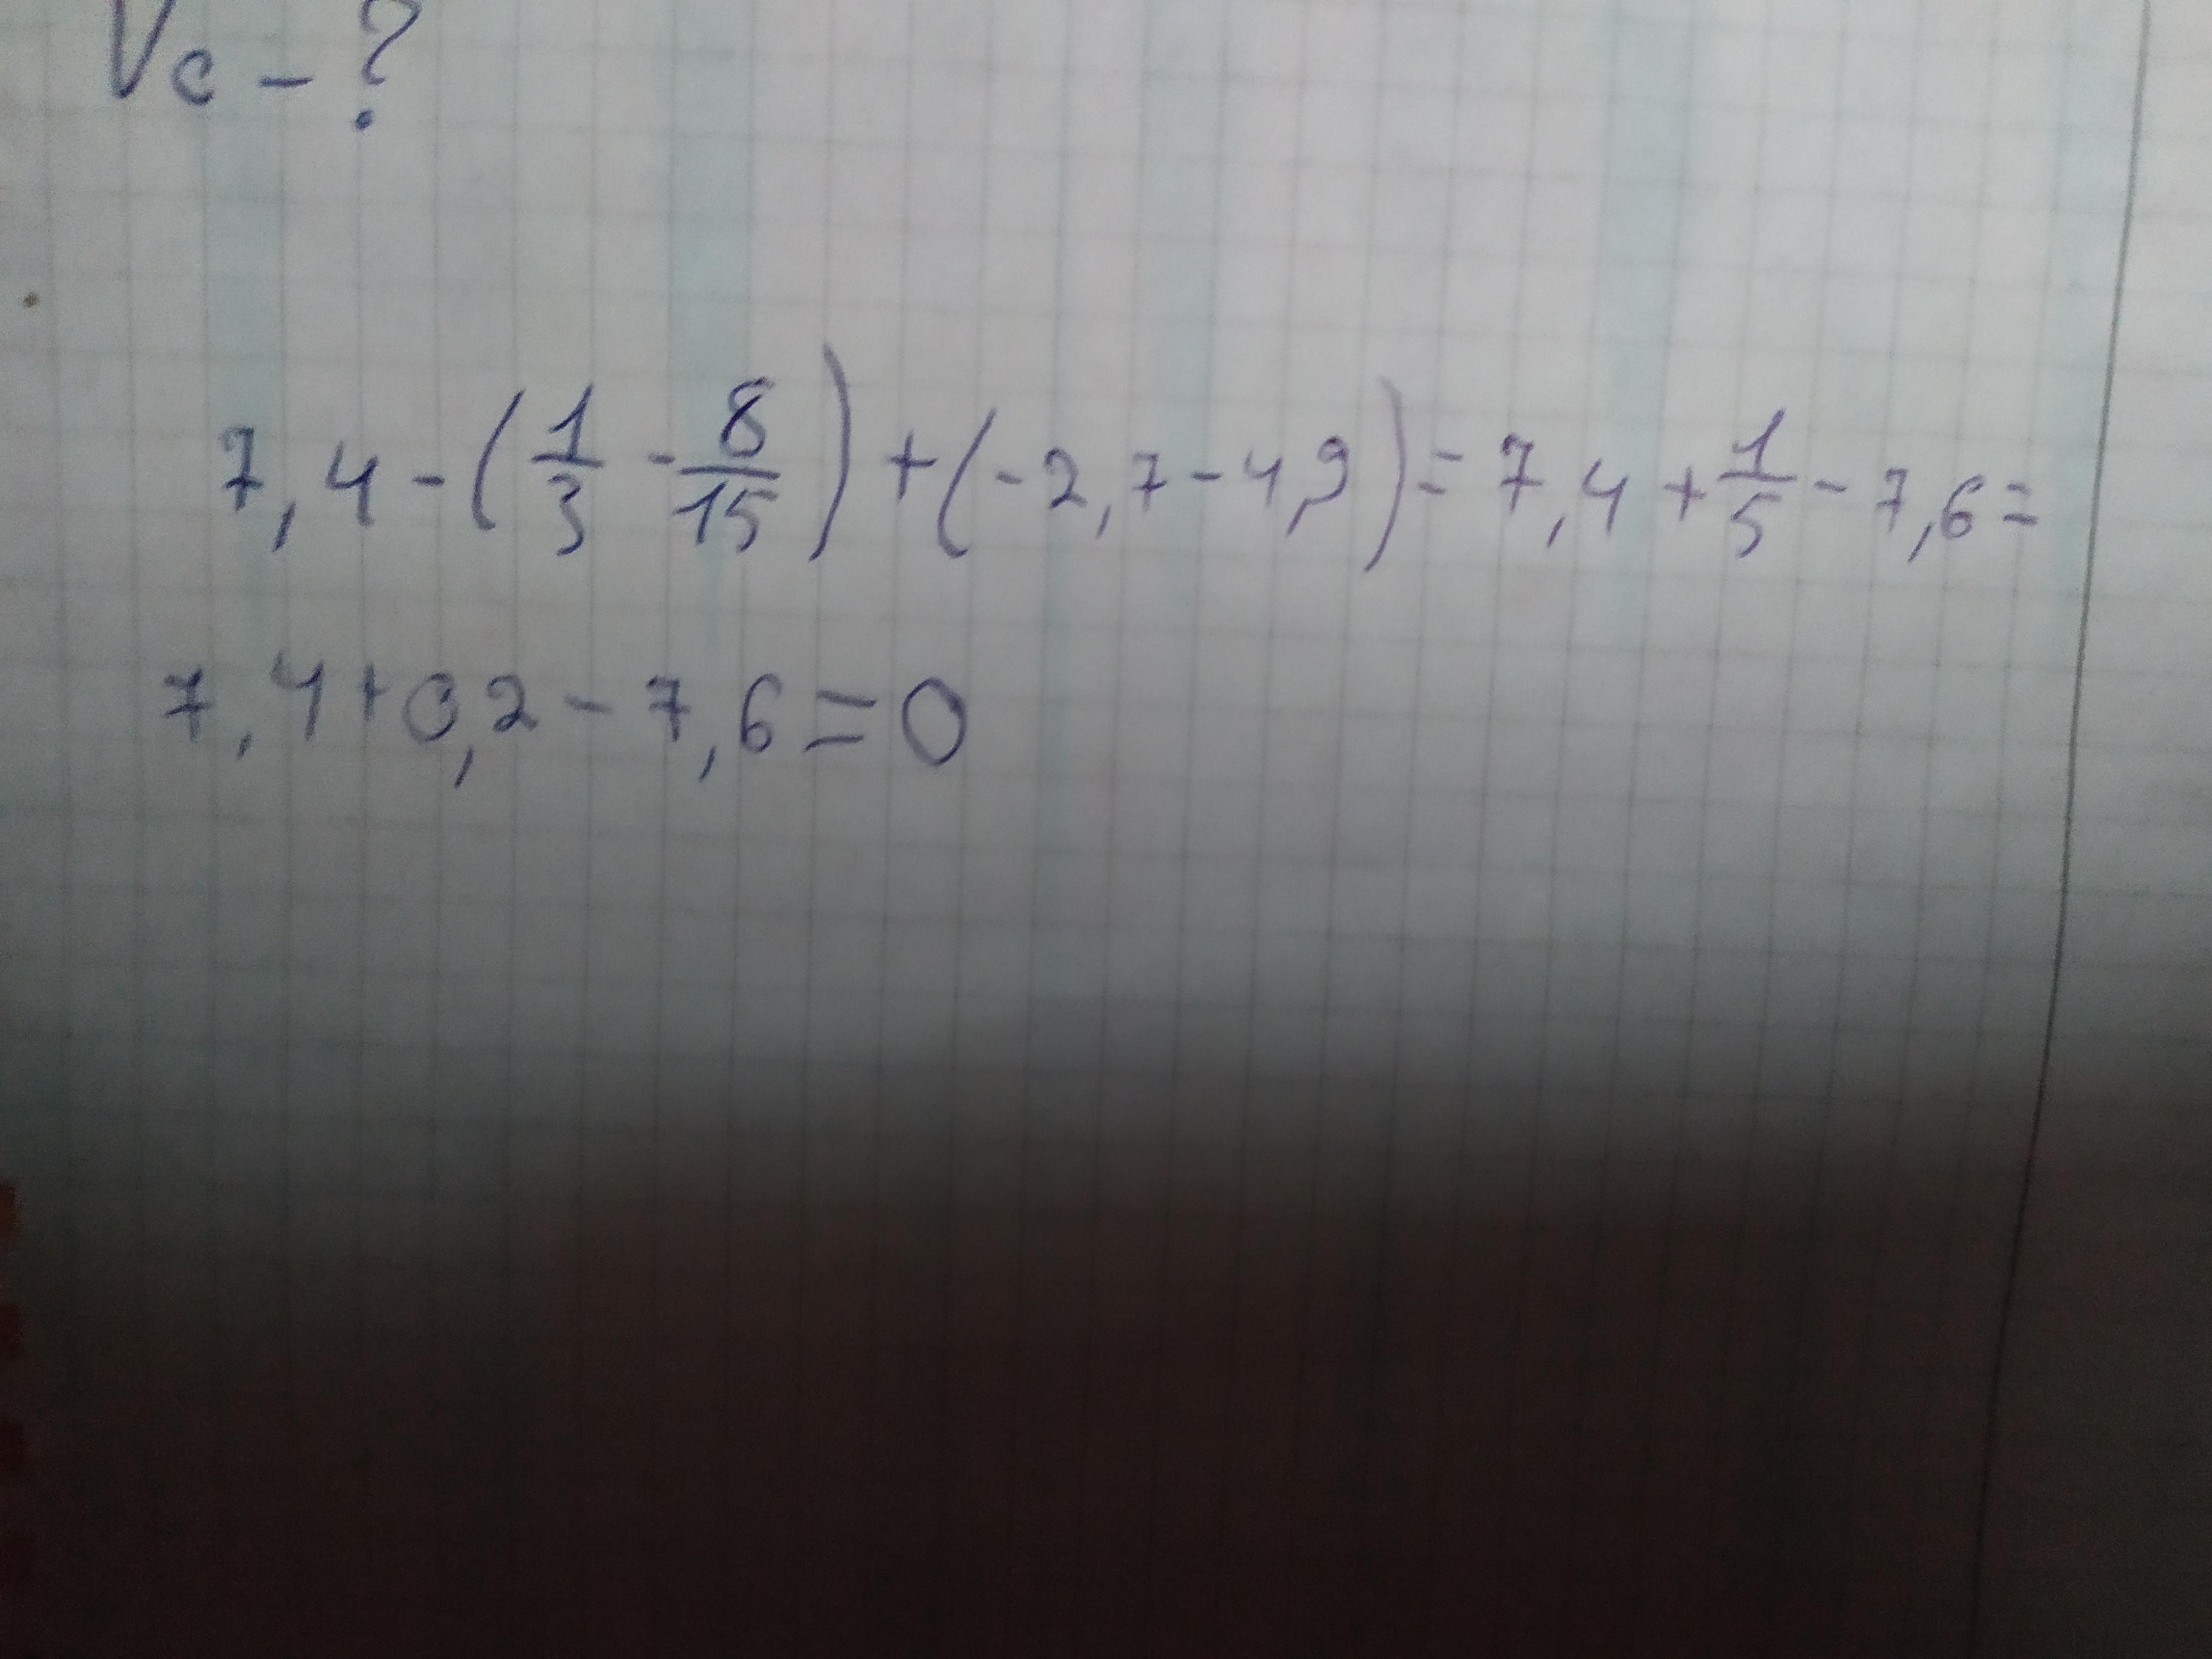 Vс - ?
7,4 - (1/3 - 8/15) + (-2,7 - 4,9) = 7,4 + 1/5 - 7,6 =
7,4 + 0,2 - 7,6 = 0